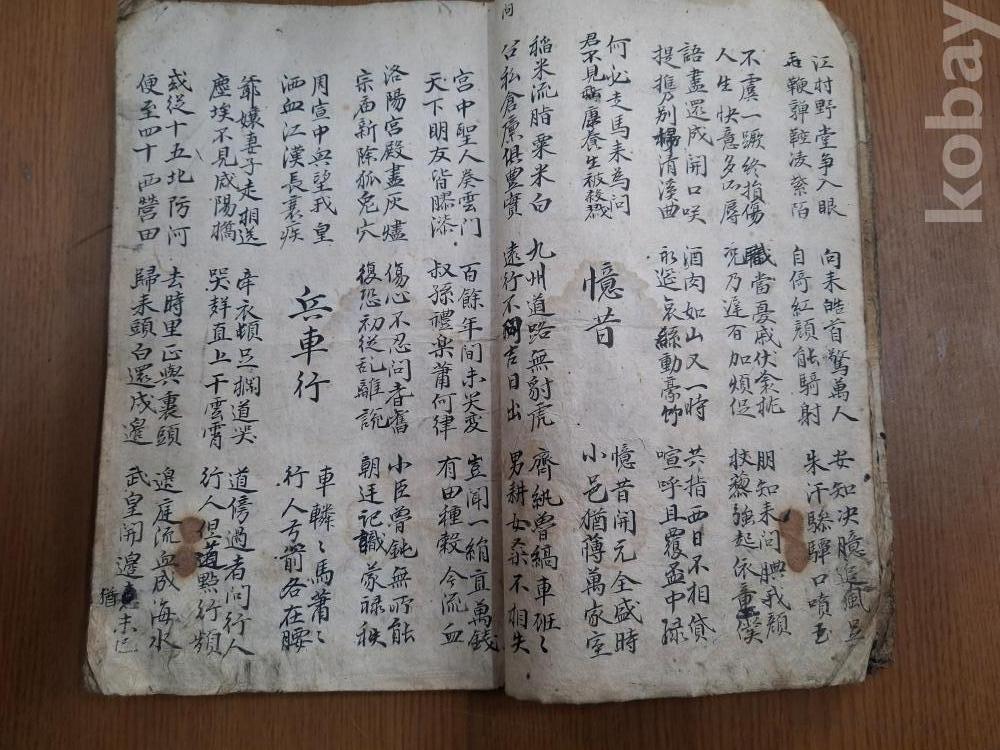 江村野堂争入眼
垂鞭嚲鞚凌紫陌
向来皓首驚萬人
自倚紅顔能騎射
安知决臆追風足
朱汗驂驔口噴玉
不虞一蹶終損傷
人生快意多所辱
職當憂戚伏衾枕
况乃遅百加煩促
朋知来問腆我顔
扙藜強起依童僕
語盡還成開口咲
提携別掃清溪曲
酒肉如山又一時
哀絲動豪竹
共指西日不相貸
喧呼且覆盃中渌
何必走馬来為問
君不見嵇康養生被殺戮
憶昔
憶昔開元全盛時
小邑猶蔵萬家室
稲米流脂粟米白
公私倉廪俱豊實
九州道路無豺虎
遠行不問吉日出
齊紈魯縞車班〻
男耕女桒不相失
宮中聖人奏雲門
天下朋友皆膠漆
百餘年間未灾変
叔孫禮楽蕭何律
豈聞一絹直萬錢
有田種穀今流血
洛陽宮殿盡灰燼
宗庙新除狐兎穴
傷心不忍問耆舊
復恐初従乱離説
小臣魯鈍無所能
朝廷記識蒙禄秩
周宣中興望我皇
洒血江漢長衰疾
兵車行
車轔〻馬蕭〻
行人弓箭各在腰
爺孃妻子走相送
塵埃不見咸陽橋
牵衣頓足攔道哭
哭聲直上干雲霄
道傍過者問行人
行人但道點行頻
或従十五北防河
便至四十西營田
去時里正與裹頭
歸来頭白還戍邊
邊庭流血成海水
武皇開邊猶未已
問
kobay